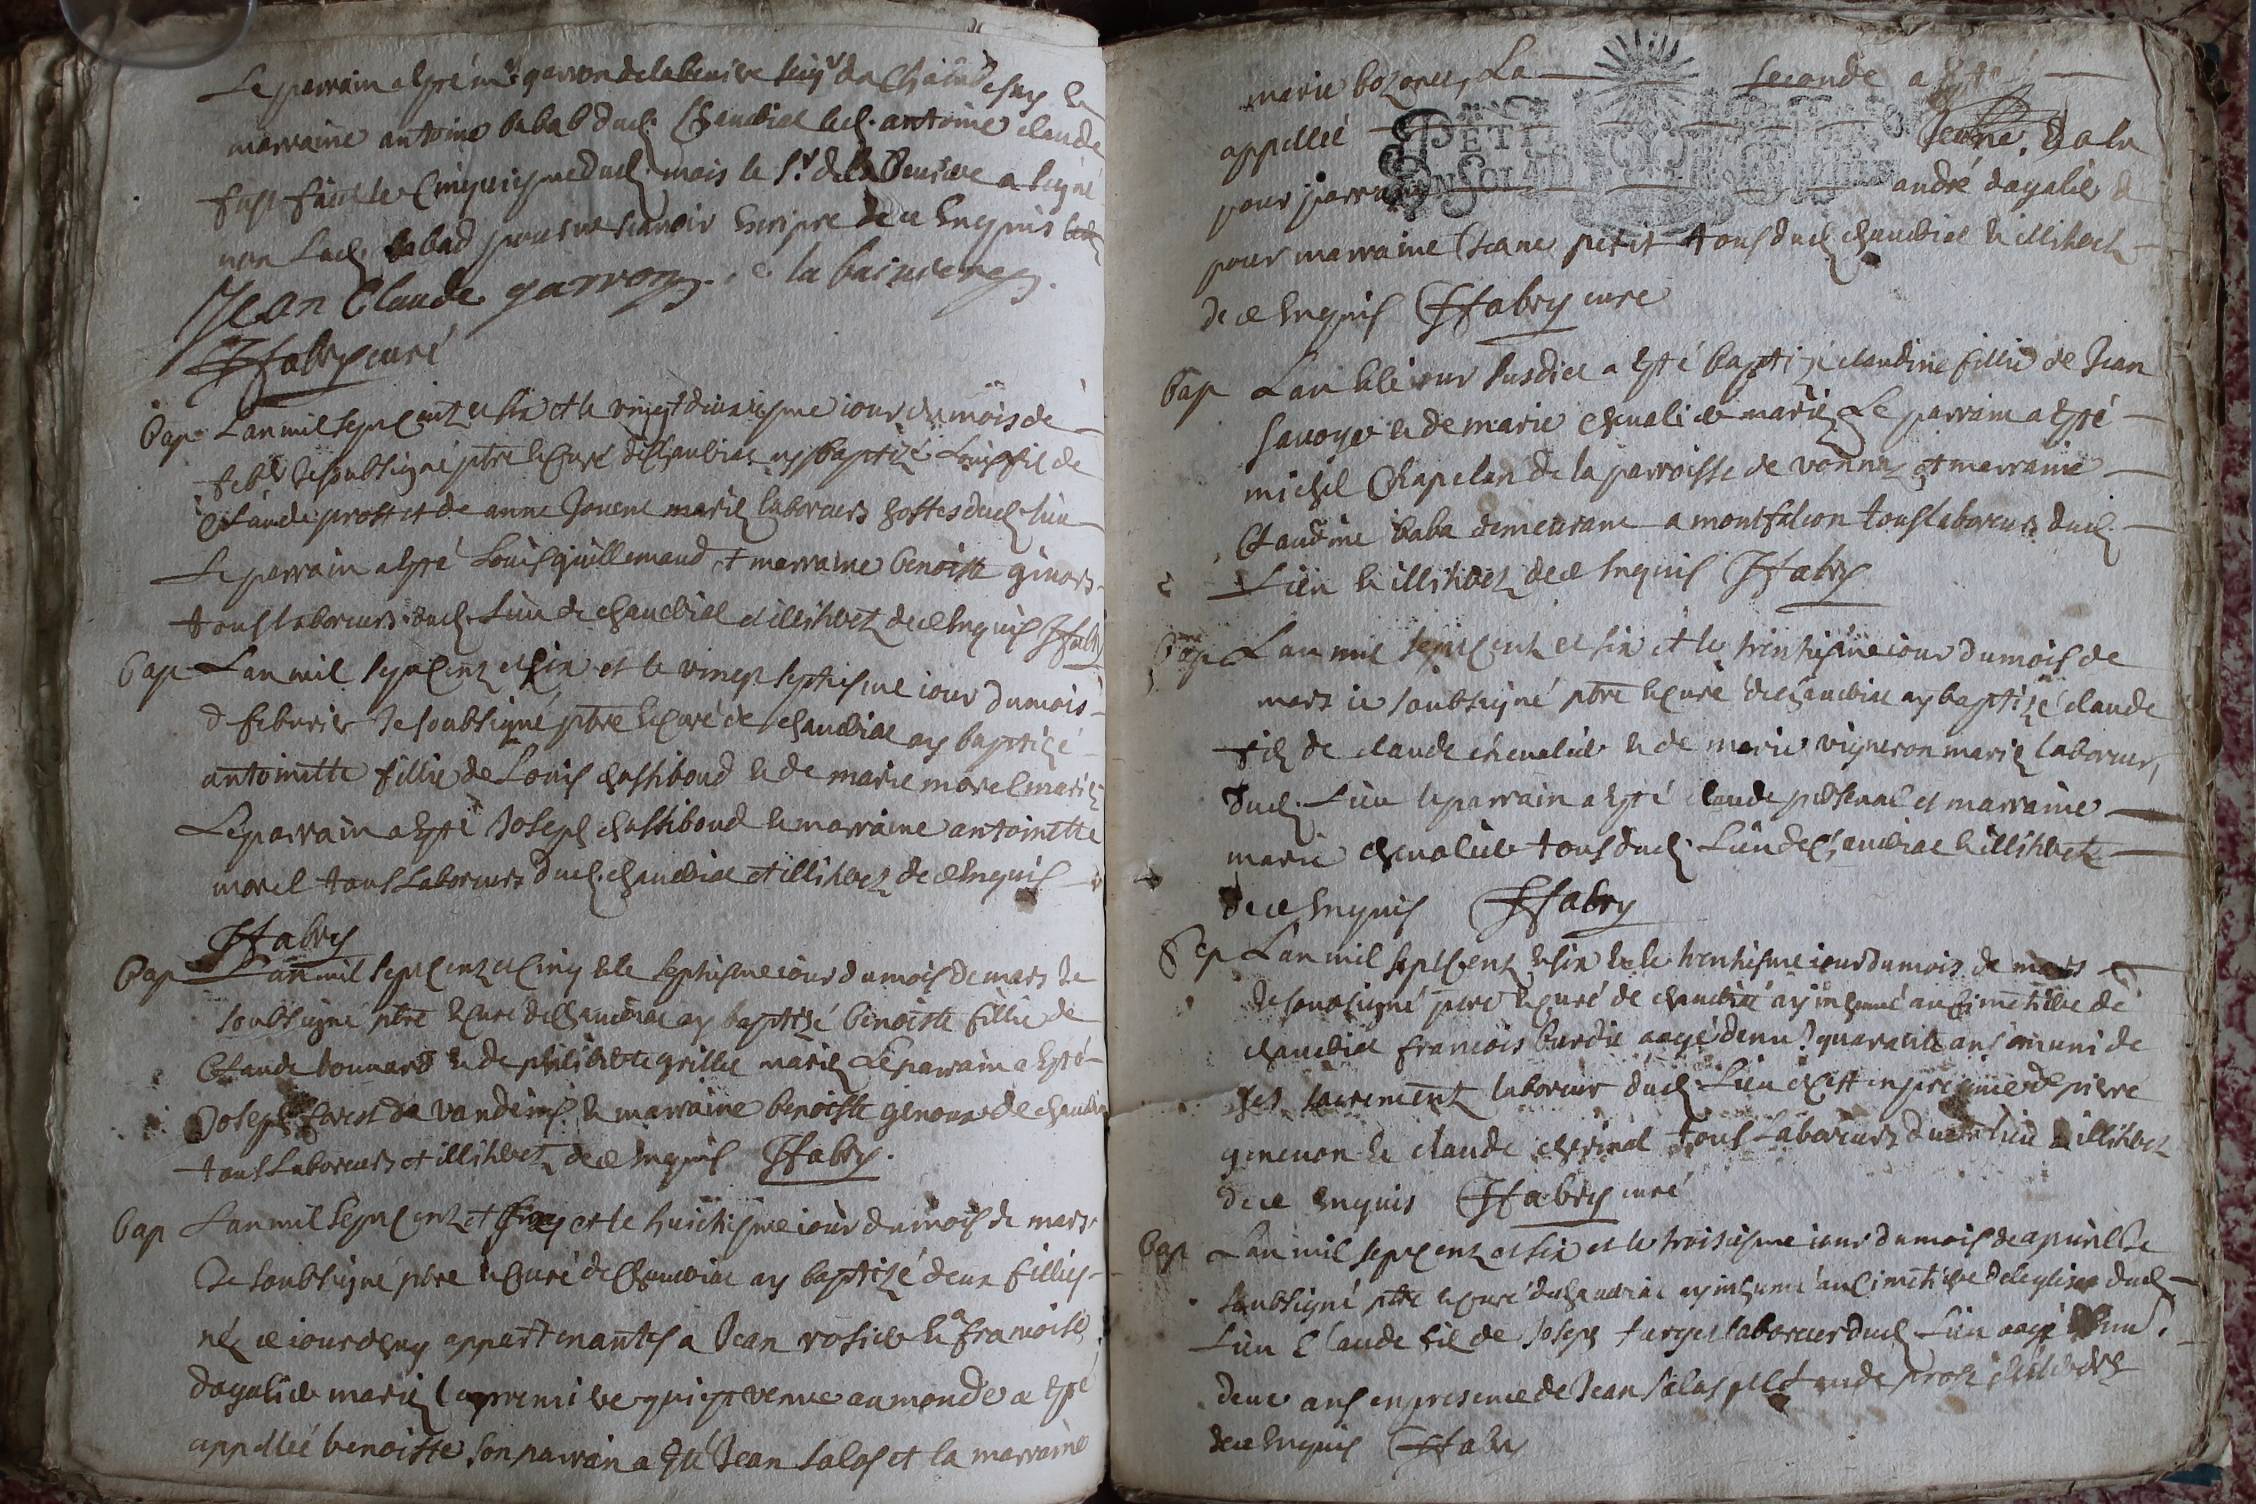 Le parrain a esté mr garron de la beuive seigr de Chaine et sa
marraine antoine babad dud. Chaveiriat led. antoine claude
fust fait le Cinquiesme dud. mais le Sr de la Beuive a signé
non lad. babad pour ne scavoir escripre de ce enquis
Jean Claude garron la baiuve
ffabry curé
Bap L an mil sept cent et six et le vingt deuxiesme iour du mois de
febr Je soubsigné ptre et Curé de Chaveiriat ay baptizé Louis fil de
Claude prost et de anne Jouene mariez laboreurs hostes dud. lieu
Le parrain a esté Louis guillemaud et marraine benoiste
tous laboreurs dud. Lieu de chaveiriat et illiterez de ce enquis ffabry
Bap L an mil sept cent et six et le vingt septiesme iour du mois
d feburier Je soubsigné ptre et Curé de chaveiriat ay baptizé
antoinette fillie de Louis chastiboud et de marie morel mariez
Le parrain a esté Joseph chastiboud et marraine antoinette
morel tous Laboreurs dud. chaveiriat et illiterez de ce enquis
ffabry
Bap L an mil sept cent et Cinq et le septiesme iour du mois de mars Je
soubsigné ptre et Curé de Chaveiriat ay baptizé benoiste fillie de
Claude bonnard et de philiberte grillet mariez Le parrain a esté
Joseph de vandeins et marraine benoiste genoux de
tous Laboreurs et illiterez de ce enquis ffabry.
Bap L an mil sept cent et et le huictiesme iour du mois de mars
Je soubsigné ptre et Curé de Chaveiriat ay baptizé deux fillies
né ce iourdhuy appartenantes a Jean rosier et a francoise
dagalier mariez la premiere qui est venue au monde a esté
appellée benoiste son parrain a esté Jean Salas et la marraine
marie bozonet, La seconde a esté
appellée Jeane. Et a lu
pour parrain andré dagalier et
PETIT
pour marraine Jeane petit tous dud. chaveiriat et illiterez
de ce enquis ffabry curé
Bap L an et le iour susdict a esté baptizé claudine fillie de Jean
Savoye et de marie chevalier mariez Le parrain a esté
michel Chapelan de la parroisse de vonnaz et marraine
Claudine baba demeurant a montfalcon tous laboreurs dud.
Lieu et illiterez de ce enquis ffabry
Bap L an mil sept cent et six et le trentiesme iour du mois de
mars ie soubsigné ptre et Curé de Chaveiriat ay baptizé claude
fils de claude chevalier et de marie vigneron mariez laboreurs
dud. Lieu le parrain a esté claude et marraine
marie chevalier tous dud. Lieu de Chaveiriat et illiterez
de ce enquis ffabry
Sep L an mil sept cent et six et le trentiesme iour du mois de mars
Je soubsigné ptre et Curé de chaveiriat ay inhumé au cimetiere de
chaveiriat francois burdie aagé denv. quarante ans muni de
ses sacrement laboreur dud. Lieu et en presence de pierre
genevon et claude tous Laboreurs dud. lieu et illiterez
de ce enquis ffabry curé
Bap L an mil sept cent et six et le troisiesme iour du mois de apuril Je
soubsigné ptre et Curé de Chaveiriat ay inhumé au cimetiere de l eglise dud.
Lieu Claude fil de Joseph laboreur dud. Lieu aagé denv.
deux ans en presence de Jean Salas et Claude prost illiterez
de ce enquis ffabry